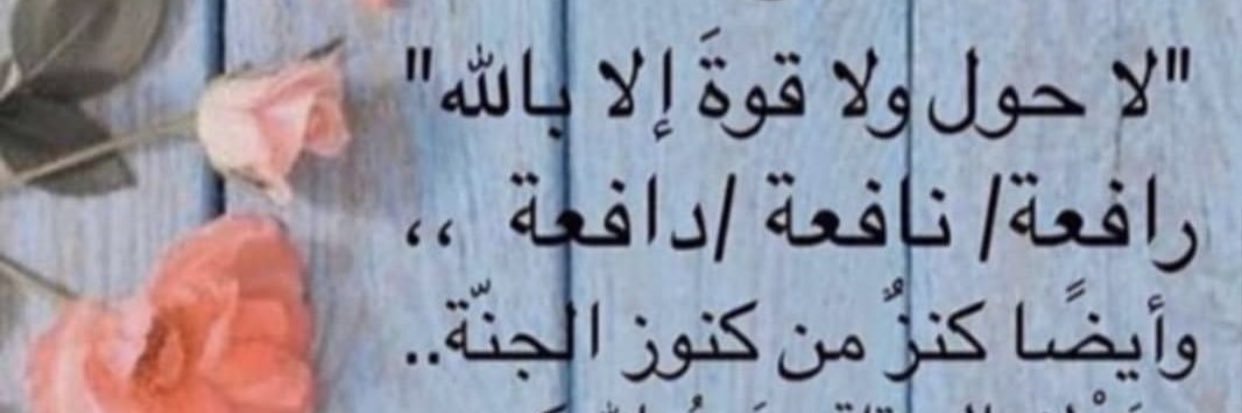 "لا حول ولا قوةَ إلا بالله"
رافعة/ نافعة /دافعة ،،
وأيضًا كنزٌ من كنوز الجنّة..